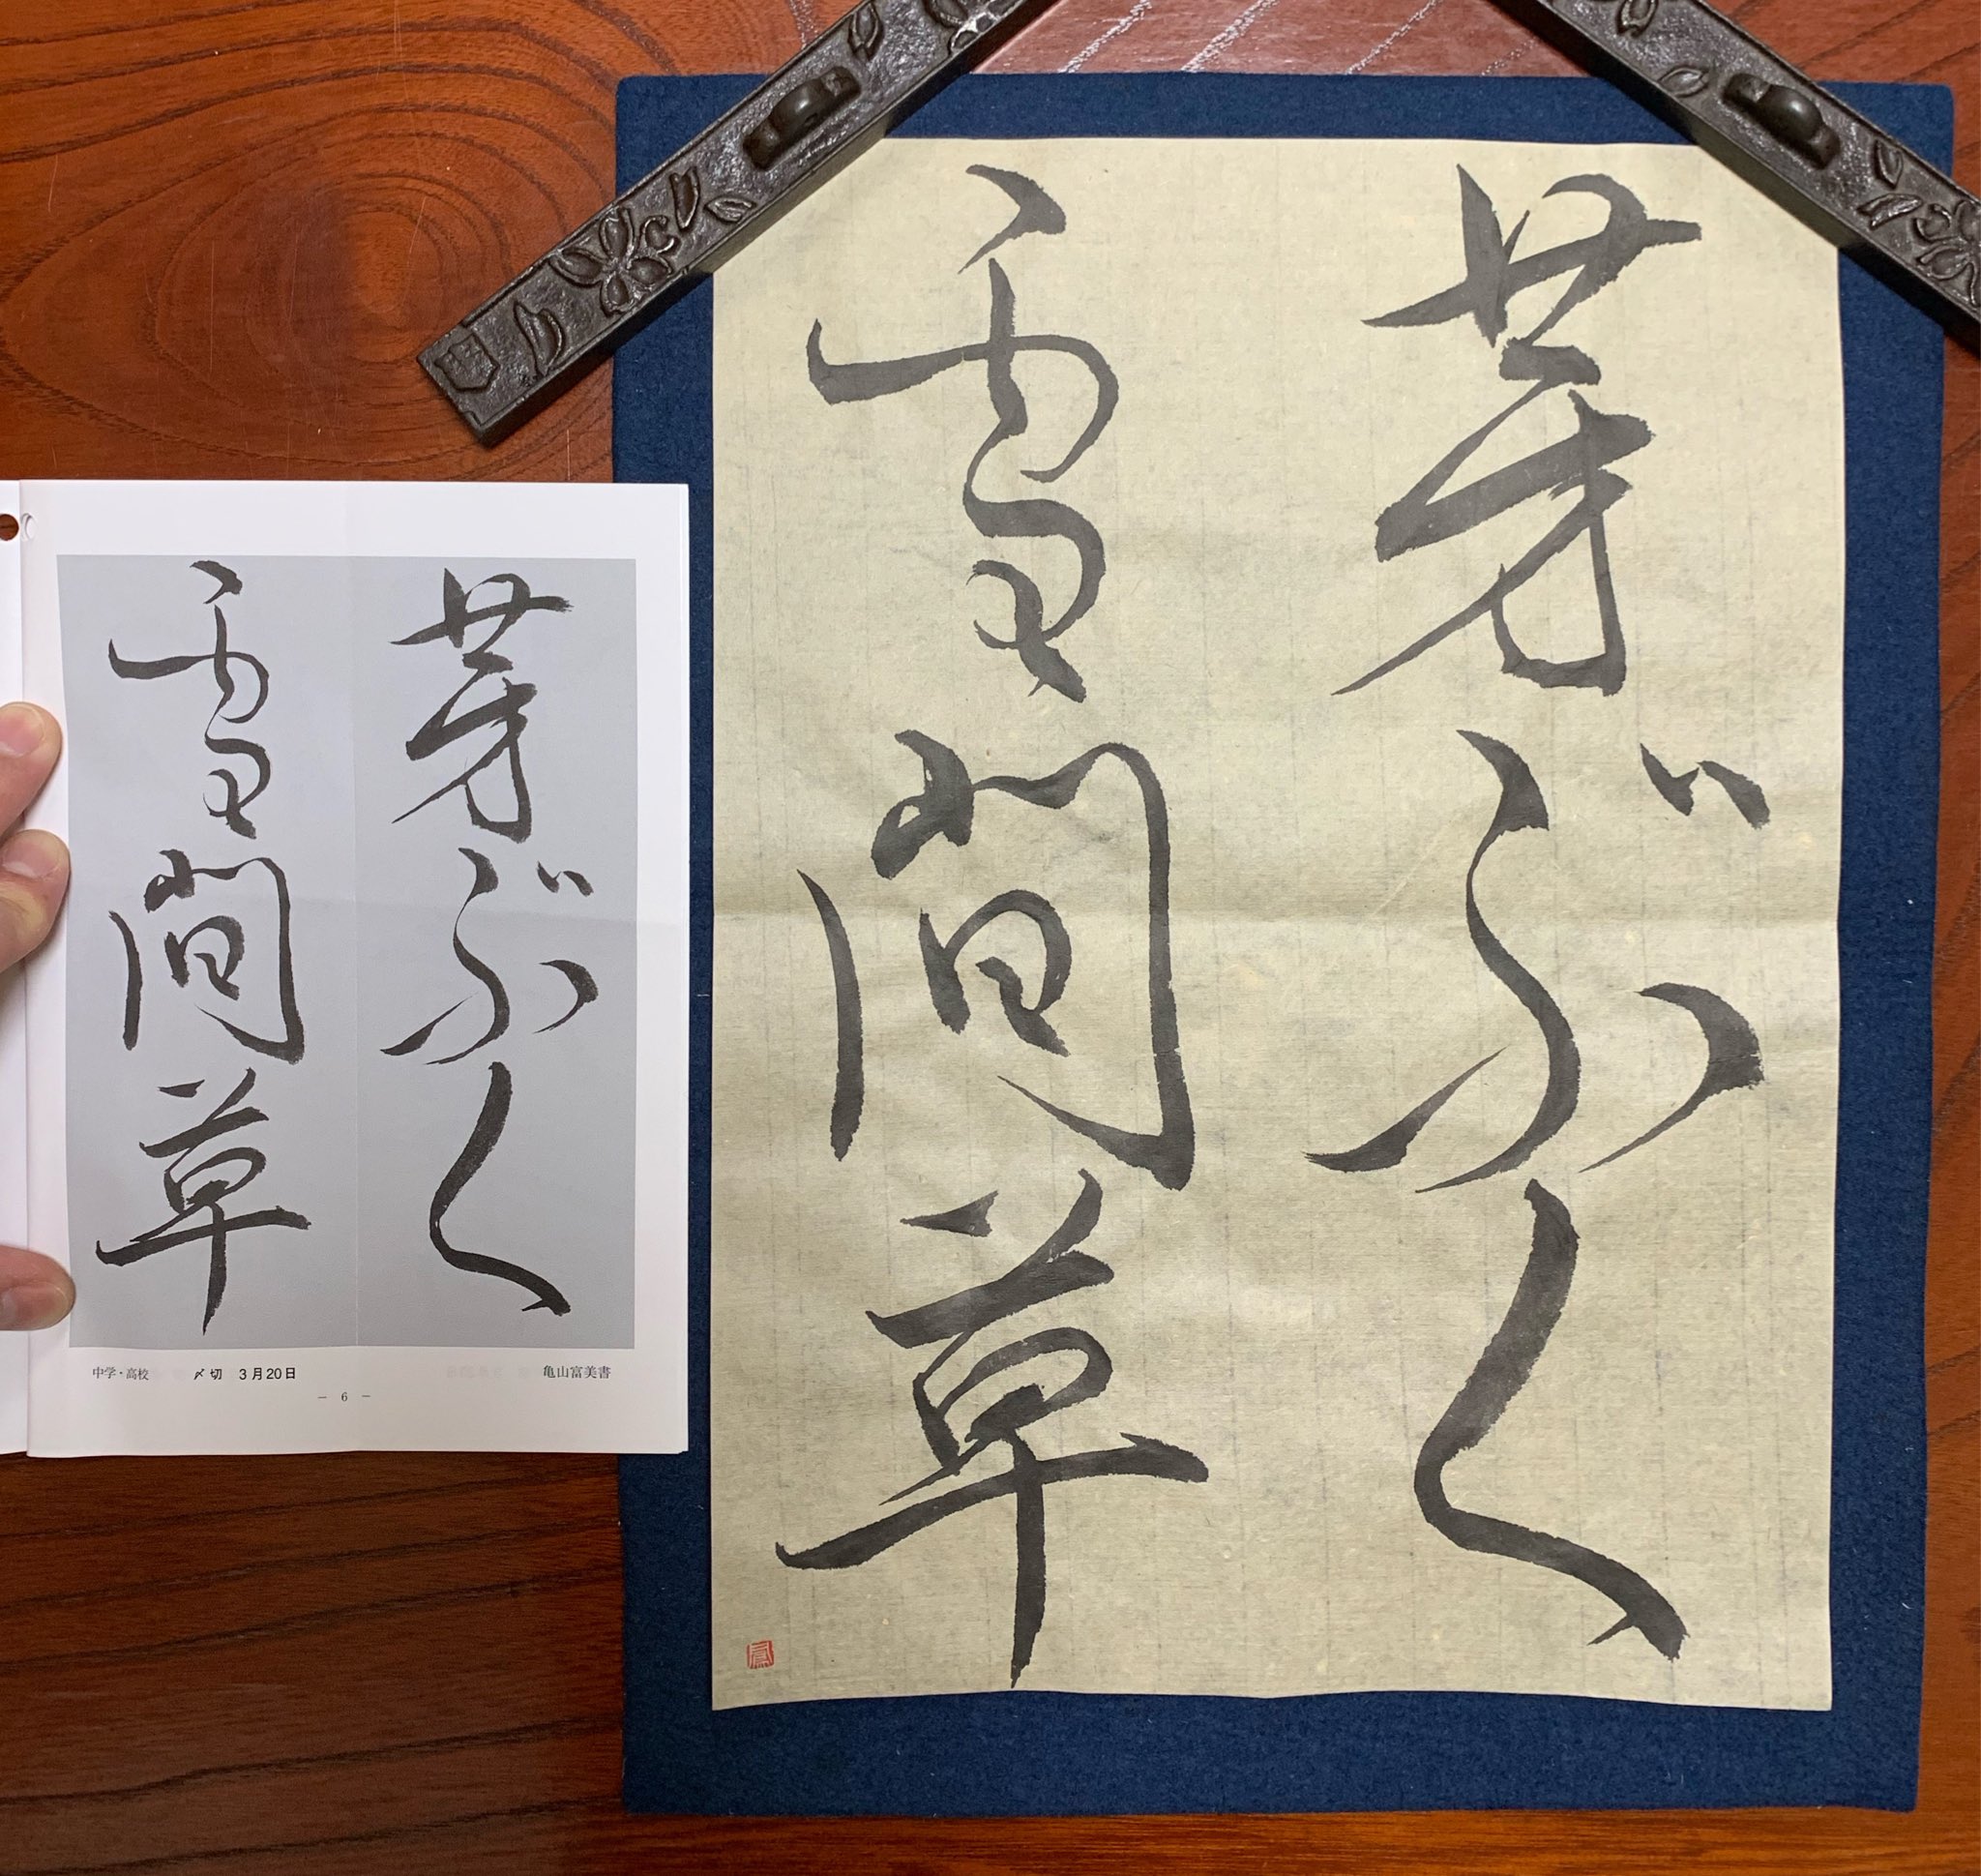 芽ぶく
雪間草
芽ぶく
雪間草
中学・高校 〆切 3月20日 亀山富美書
― 6 ―